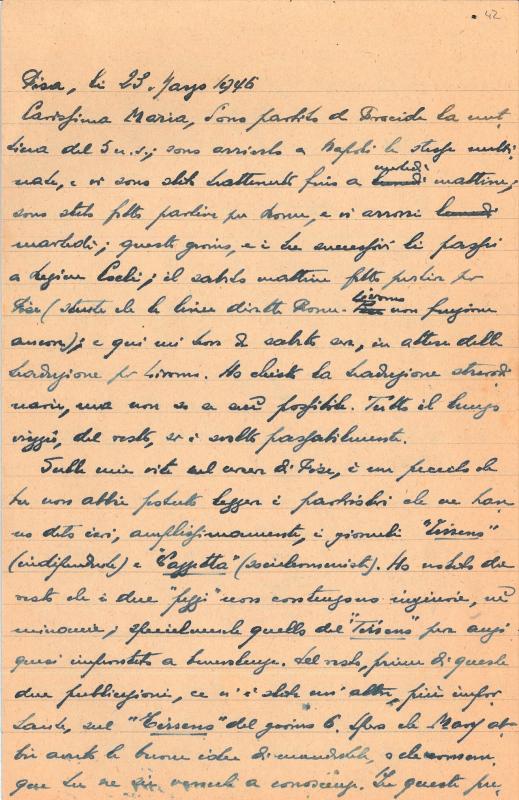 42
Pisa, li 23. Marzo 1946
Carissima Maria, Sono partito da Procida la mat-
tina del 5 u.s.; sono arrivato a Napoli la stessa matti-
nata, e vi sono stato trattenuto fino a lunedì martedì mattina;
sono stato fatto partire per Roma, e vi arrivai lunedì
martedì; questo giorno, e i tre successivi li passai
a Regina Coeli; il sabato mattina fatto partire per
Pisa (stante che la linea diretta Roma-Pisa Livorno non funziona
ancora); e qui mi trovo da sabato sera, in attesa della
traduzione per Livorno. Ho chiesto la traduzione straordi-
naria, ma non so se sarà possibile. Tutto il lungo
viaggio, del resto, si è svolto passabilmente.
Sulla mia vita nel carcere di Pisa, è un peccato che
tu non abbia potuto leggere i particolari che ne han-
no dato ieri, amplissimamente, i giornali "Tirreno"
(indipendente) e "Gazzetta" (socialcomunista). Ho notato del
resto che i due "pezzi" non contengono ingiurie, né
minacce; specialmente quello del "Tirreno" pare anzi
quasi improntato a benevolenza. Del resto, prima di queste
due pubblicazioni, ce n'è stata un'altra, più impor-
tante, sul "Tirreno" del giorno 6. Spero che Mary ab-
bia avuto la buona idea di mandartela, o che comun-
que tu ne sia venuta a conoscenza. In questo